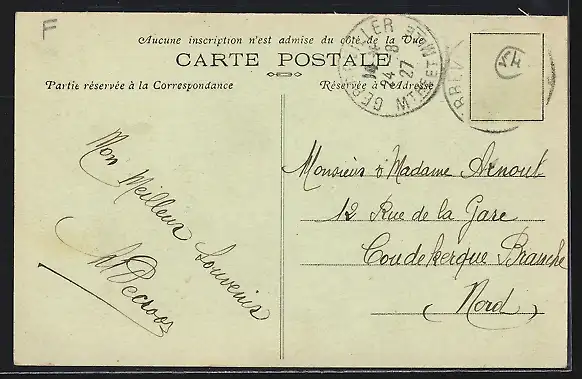 F
Aucune inscription n'est admise du côté de la Vue
CARTE POSTALE
Partie réservée à la Correspondance
Réservée à l'Adresse
24 -8
27
Mon Meilleur Souvenir
M Decroos
Monsieur & Madame Arnout
12 Rue de la Gare
Coudekerque Branche
(Nord)